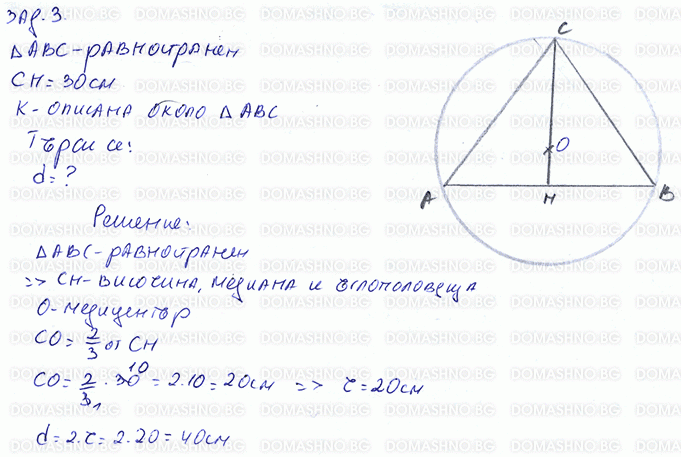 Зад. 3.
△ABC - равностранен
CH = 30см
K - описана около △ABC
Търси се:
d = ?
Решение:
△ABC - равностранен
=> CH - височина, медиана и ъглополовяща
O - медицентър
CO = 2/3 от CH
CO = 2/3 . 30 = 2.10 = 20см => r = 20см
10
1
d = 2.r = 2.20 = 40см
C
O
A
H
B
DOMASHNO.BG